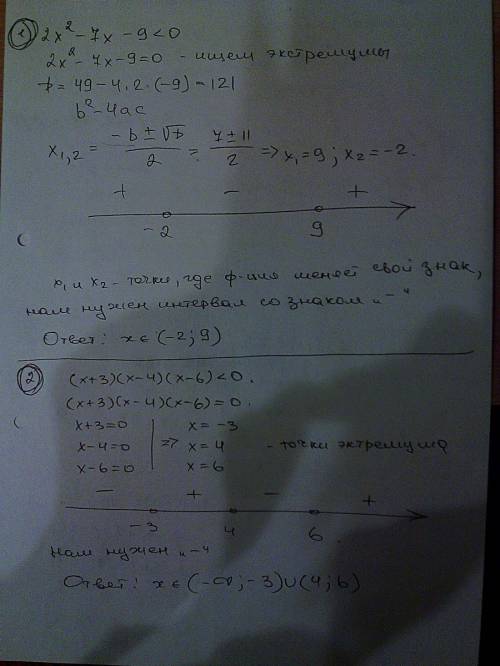 ① 2x² - 7x - 9 < 0
2x² - 7x - 9 = 0 - ищем экстремумы
D = 49 - 4 · 2 · (-9) = 121
b² - 4ac
x₁,₂ = (-b ± √D)/2 = (7 ± 11)/2 => x₁ = 9 ; x₂ = -2.
+ - +
-2 9
x₁ и x₂ - точки, где ф-ция меняет свой знак,
нам нужен интервал со знаком „-“
Ответ: x ∈ (-2; 9)
② (x+3)(x-4)(x-6) < 0.
(x+3)(x-4)(x-6) = 0.
x+3=0 => x = -3
x-4=0 x = 4 - точки эктремума
x-6=0 x = 6
- + - +
-3 4 6.
нам нужен „-“
Ответ: x ∈ (-∞; -3) ∪ (4; 6)